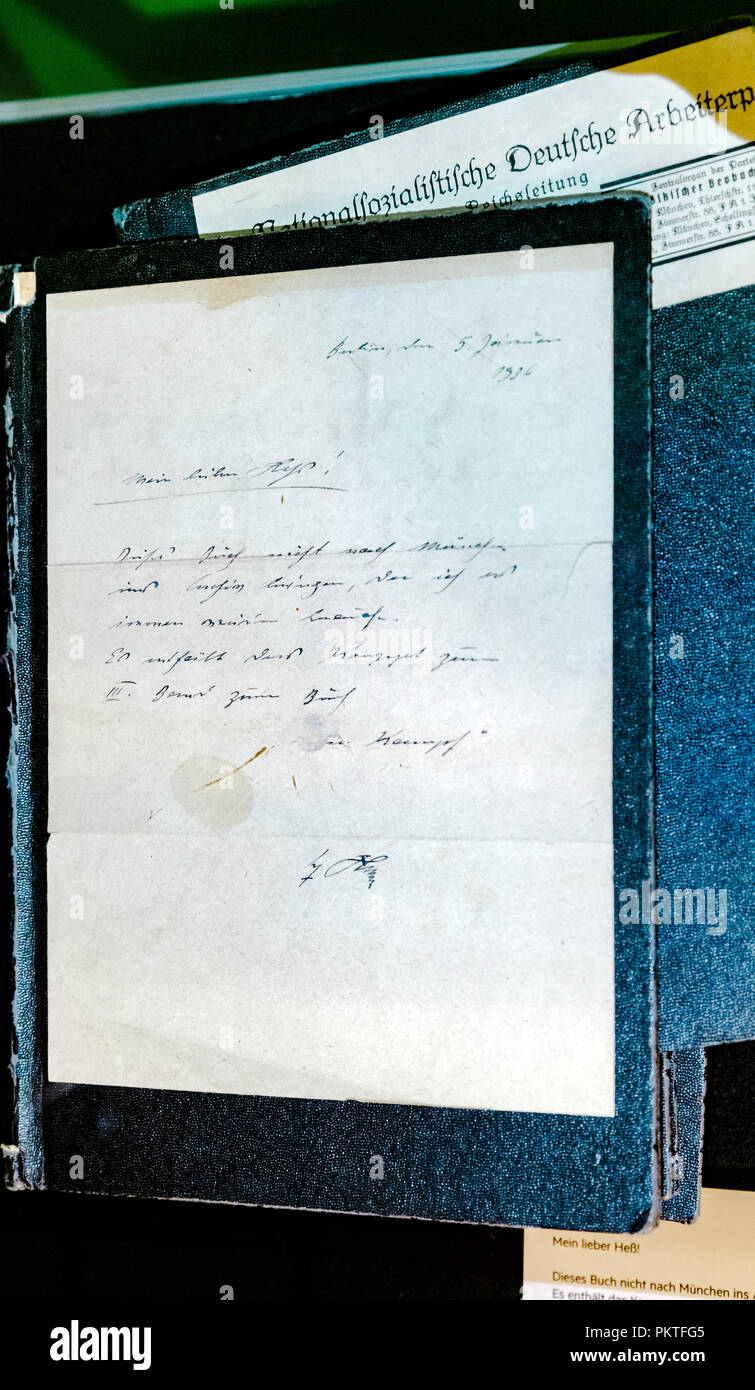 Nationalsozialistische Deutsche Arbeiterp
Reichsleitung
Zentralorgan der Partei
lkischer Beobac
München, Thierschstr. 11
Zimmerstr. 88, F A 1
ung: München, Schelling
Zimmerstr. 88, F A 1
Berlin, den 5. Januar
1936
Mein lieber Heß!
Dieses Buch nicht nach München
ins Archiv bringen, da ich es
immer wieder brauche.
Es enthält das Konzept zum
III. Band zum Buch
Kampf"
Mein lieber Heß!
Dieses Buch nicht nach München ins A
Es enthält das K
alamy
alamy
Image ID: PKTFG5
www.alamy.com